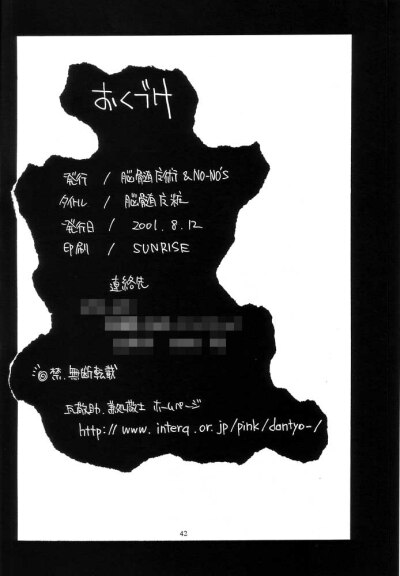 おくづけ
発行 / 脳髄皮術 & NO-NO'S
タイトル / 脳髄皮粧
発行日 / 2001. 8. 12
印刷 / SUNRISE
連絡先
禁.無断転載
ホームページ
http://www.interq.or.jp/pink/dantyo-/
42